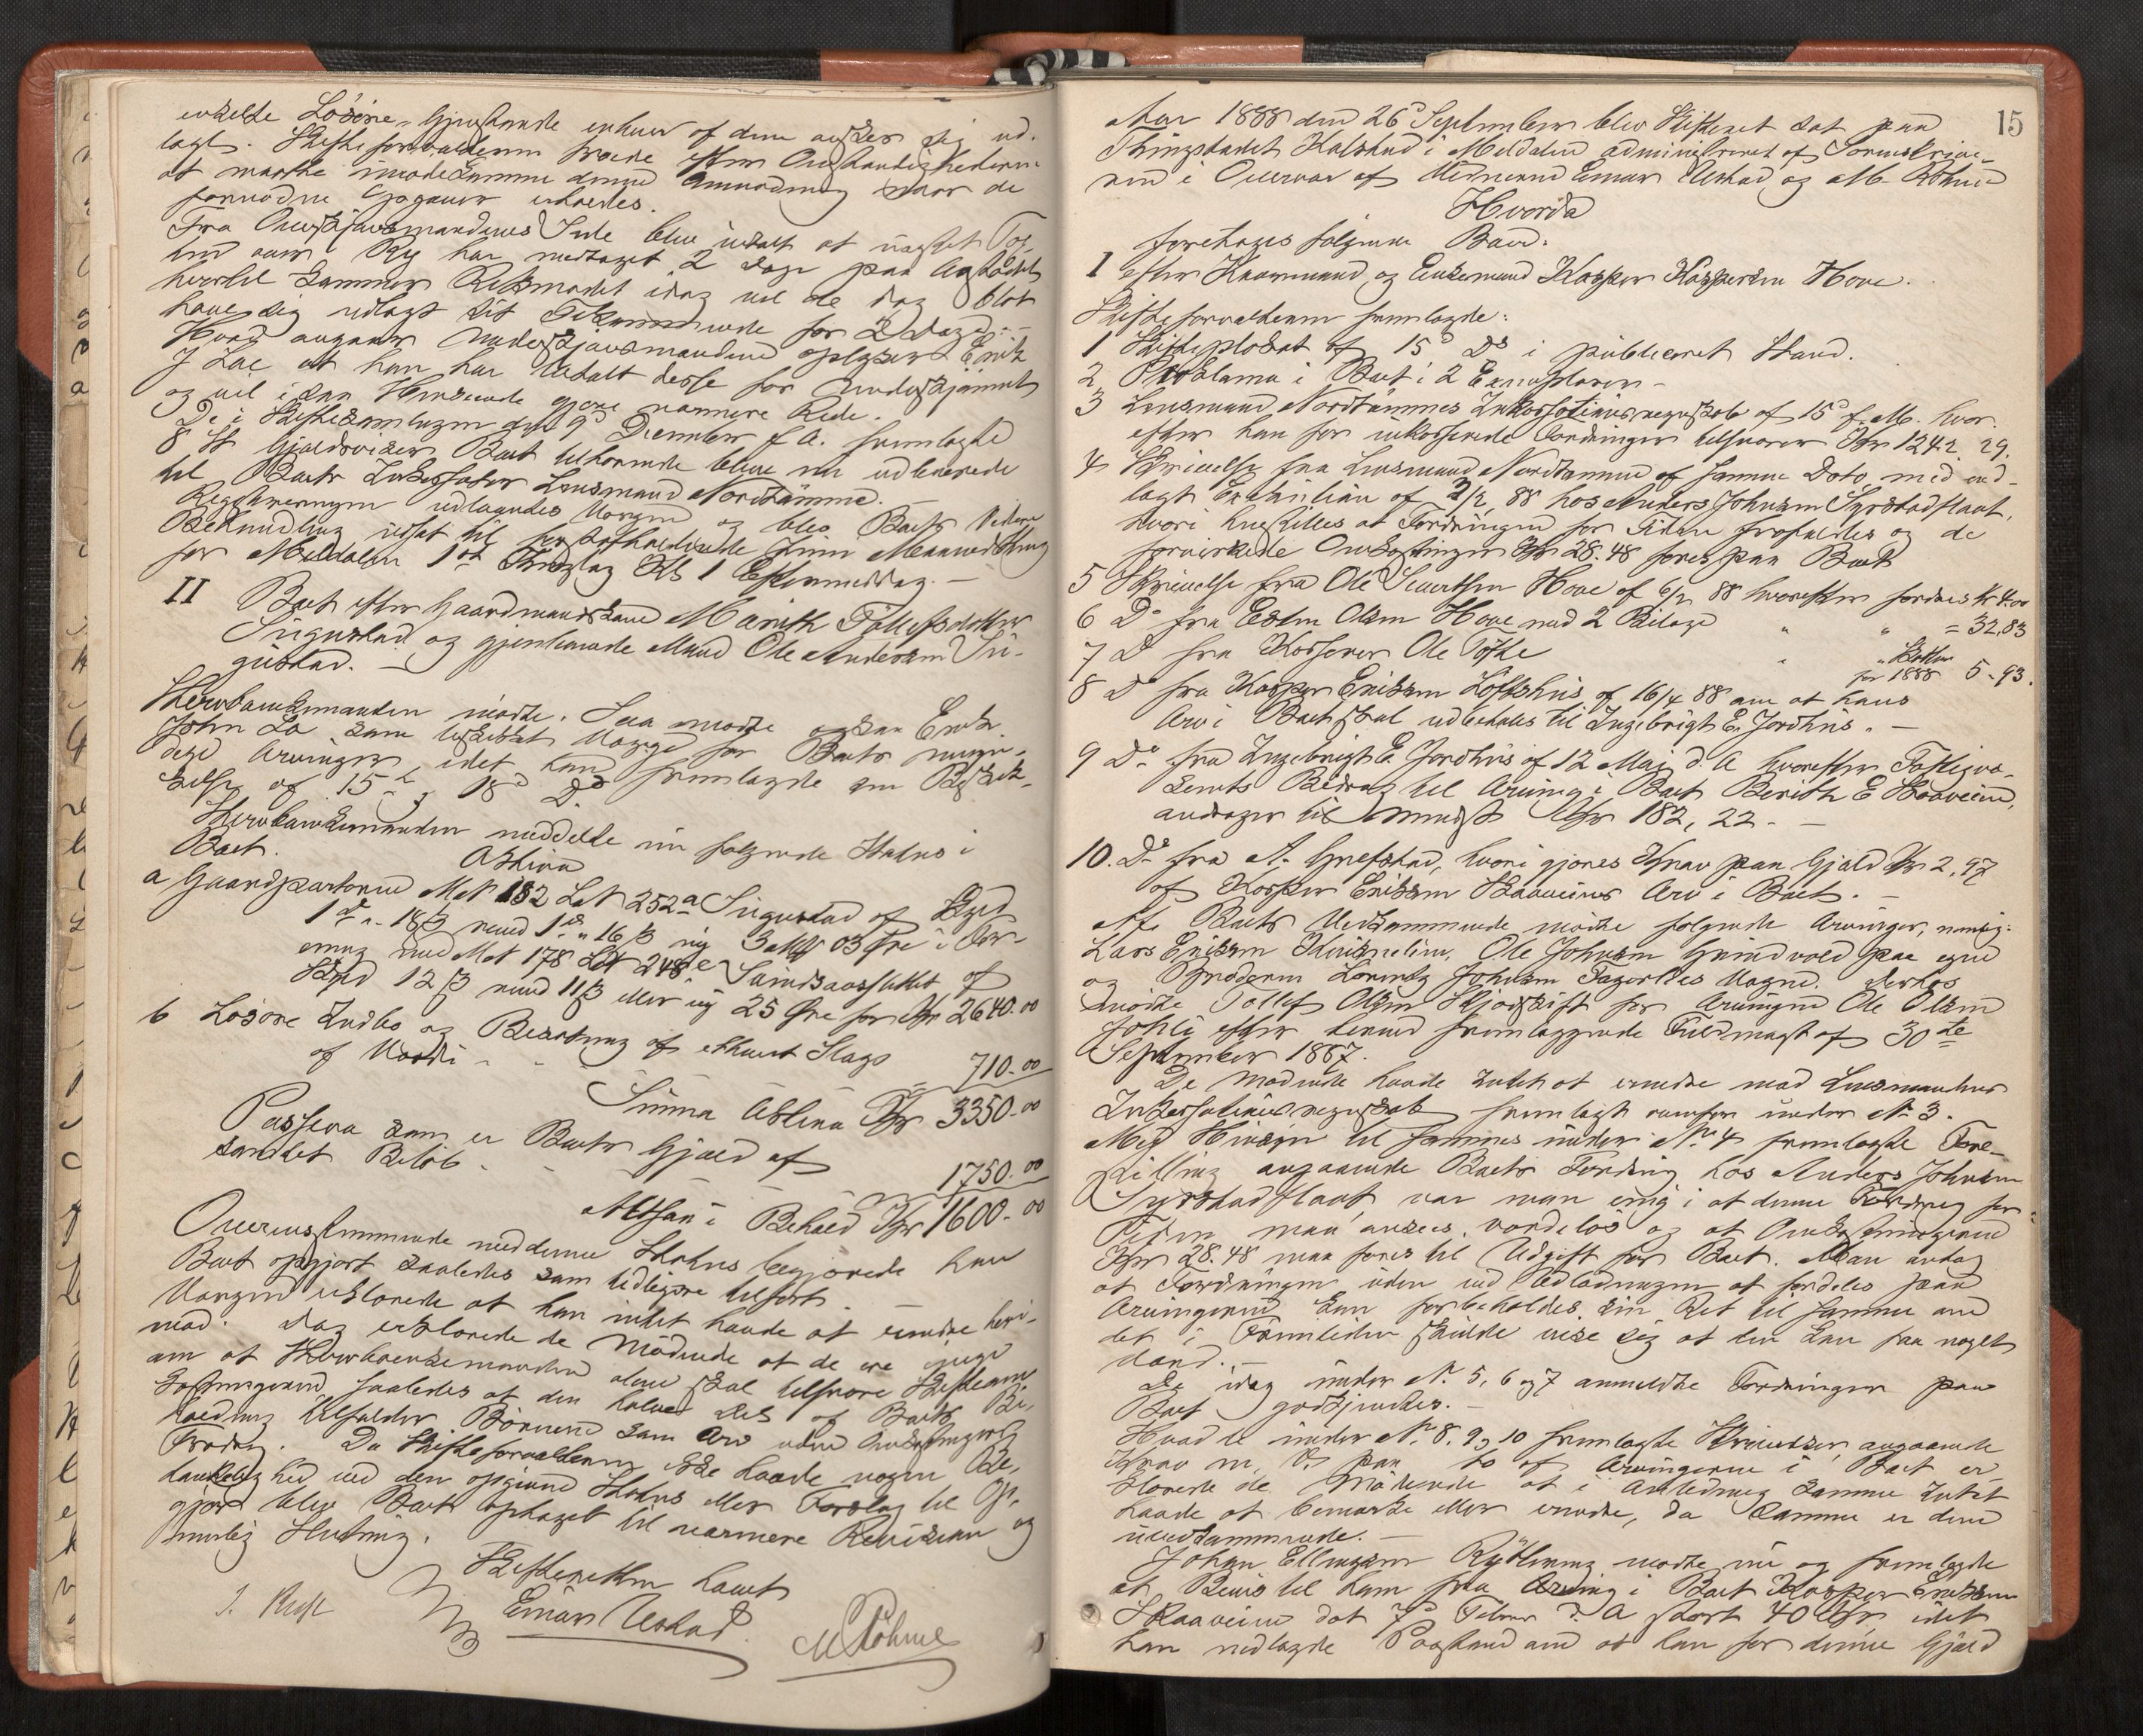 enkelte Løsøre-Gjenstande enhver af dem ønsker sig ud-
lagt. Skifteforvalteren troede efter Omstændighederne
at maatte imødekomme denne Anmodning naar de
fornødne Opgaver erholdes.
Fra Omskjønsmændenes Side blev udtalt at
har medtaget 2 Dage paa
hvortil kommer Retsmødet idag vil de dog blot
have sig udlagt sit Tilkommende for 2 Dage.
Hvad angaar Underskjønsmændene oplyser Erik
J Loe at han har betalt desse for Underskjønnet
og vil i saa Henseende gjøre nærmere Rede.
De i Skiftesamlingen den 9d December f. A. fremlagte
8 St Gjeldsviser Boet tilhørende blev nu udleverede
til Boets Inkassator Lensmand Nordtømme.
Registreringen udlaantesVærgen og blev Boets videre
Behandling udsat til førstafholdende Juni Maanedsthing
for Meldalen 1st Thingdag Kl 1 Eftermiddag. —
II Boet efter Gaardmandskone Marith Tollefsdatter
Singustad og gjenlevende Mand Ole Andersen Sin-
gustad. —
Stervboenkemanden mødte. Saa mødte ogsaa Erik
John Lo som beskikket Værge for Boets myn-
dige Arvinger, idet han fremlagde sin Beskik-
kelse af 15de, 18d Ds
Stervboenkemanden meddelte nu følgende Status i
Boet. Aktiva
a Gaardparterne Mt No 182 Lt No 252a Singustad af Skyld
1 d " 18 β rev 1 d " 16 β ny 3 Mk 03 Øre i For-
ening med Mt No 178 Lt No 248e Sundsaassættet af
Skyld 12 β rev 11 β eller ny 25 Øre for Kr 2640.00
b Løsøre Indbo og Besætning af ethvert Slags
af Værdi - - 710.00
Summa Aktiva Kr 3350.00
Passiva som er Boets Gjeld af
samlet Beløb - - 1750.00
Altsaa i Behold Kr 1600.00
Overensstemmende med denne Status begjærede han
Boet opgjort saaledes som tidligere tilført. —
Værgen erklærede at han intet havde at erindre heri-
mod. Dog erklærede de Mødende at de ere enige
om at Stervboenkemanden alene skal tilsvare Skifteom-
kostningerne saaledes at den halve Del af Boets Be-
holdning tilfalder Børnene som Arv uden Omkostningers
Fradrag. Da Skifteforvalteren ikke havde nogen Be-
tænkelighed ved den opgivne Status eller Forslag til Op-
gjør blev Boet optaget til nærmere Revision og
mulig Slutning.
Skifteretten hævet
J. Rust Einar Uvstad. M Röhme
15
Aar 1888 den 26d September blev Skifteret sat paa
Thingstedet Kalstad i Meldalen administreret af Sorenskrive-
ren i Overvær af Vidnerne Einar Uvstad og M. Röhme
Hvorda
foretoges følgende Boer:
1 efter Kaarmand og Enkemand Kasper Kaspersen Hove.
Skifteforvalteren fremlagde:
1 Skifteplakat af 15d Ds i publiceret Stand.
2 Proklama i Boet i 2 Exemplarer —
3 Lensmand Nordtømmes Inkassationsregnskab af 15d f. M. hvor-
efter han for inkasserede Fordringer tilsvarer Kr 1242.29.
4 Skrivelse fra Lensmand Nordtømme af samme Dato, med ved-
lagt Exekution af 2/2 88 hos Anders Johnsen Syrstadflaat,
hvori henstilles at Fordringen for Tiden frafaldes og de
forvirkede Omkostninger Kr 28.48 føres paa Boet
5 Skrivelse fra Ole Sivertsen Hove af 6/2 88 hvorefter fordres Kr 4.00
6 Do fra Esten Olsen Hove med 2 Bilage " " = 32,83
7 Do fra Kasserer Ole Tøfte " " Skatter for 1888 5-93.
8 Do fra Kasper Eriksen Løftshus af 16/4 88 om at hans
Arv i Boet skal udbetales til Ingebrigt E. Jordhus. —
9 Do fra Ingebrigt E. Jordhus af 12 Mai d. A hvorefter Fattigvæ-
senets Bidrag til Arving i Boet Berith E Skaaveien,
andrager til mindst Kr 182,22. —
10. Do fra A. Grefstad, hvori gjøres Krav paa Gjæld Kr 2,97
af Kasper Eriksen Skaaveiens Arv i Boet. —
Af Boets Vedkommende mødte følgende Arvinger, nemlig:
Lars Eriksen , Ole Johnsen Grindvold paa egne
og Broderen Lorentz Johnsen Fagerlies Vegne. Derhos
mødte Tollef Olsen Skjødskift for Arvingen Ole Olsen
Fohli efter herved fremlæggende Fuldmagt af 30te
September 1887.
De Mødende havde Intet at erindre mod Lensmandens
Inkassationsregnskab fremlagt ovenfor under No 3.
Med Hensyn til sammes under No 4 fremlagte Fore-
stilling angaaende Boets Fordring hos Anders Johnsen
Syrstadflaat, var man enig i at denne Fordring for
Tiden maa ansees værdeløs og at Omkostningerne
Kr 28.48 maa føres til Udgift for Boet. Man antog
at Fordringen uden ved Udlodningen at fordeles paa
Arvingerne kan forbeholdes sin Ret til samme om
det i Fremtiden skulde vise sig at den kan faa noget
Værd. —
De idag under No 5, 6 og 7 anmeldte Fordringer paa
Boet godkjendtes. —
Hvad de under No 8, 9 og 10 fremlagte Skrivelser, angaaende
Krav m. V. paa to af Arvingerne i Boet er
klarede de Mødende at i Anledning samme Intet
havde at bemærke eller erindre, da samme er dem
uvedkommende. —
Johan Ellingsen Rykkening mødte nu og fremlagde
et Bevis til ham fra Arving i Boet Kasper Eriksen
Skaaveien dat 7d Febr d. A stort 40 Kr, idet
han nedlagde Paastand om at han for denne Gjæld